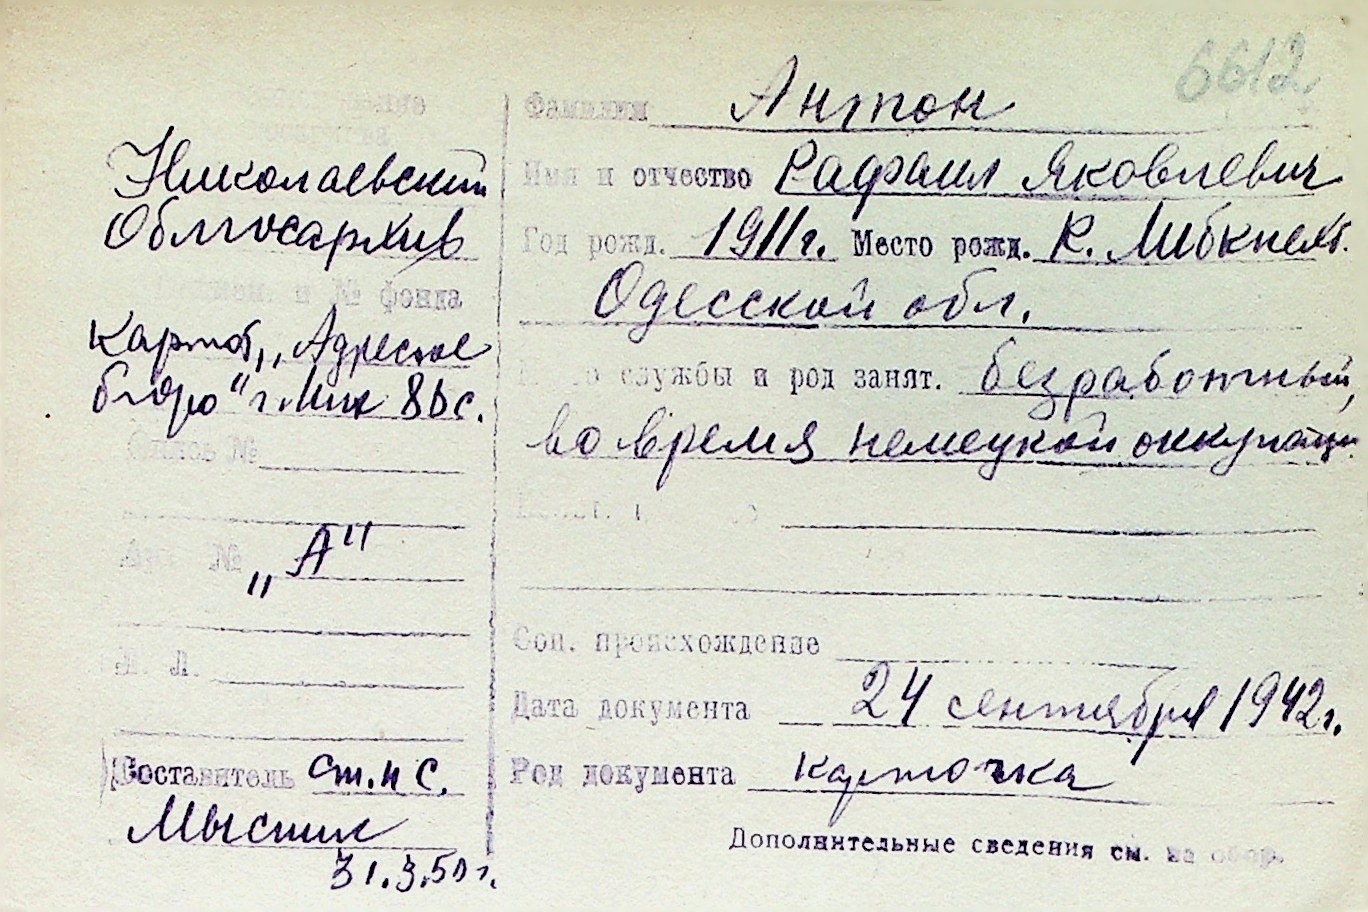 6612
Николаевский
Облгосархив
и № фонда
Картот. „Адресное
бюро" г. Ник 8Dс.
Список №
„А"
№
Л. Л.
Составитель ст. н с.
31.3.50 г.
Фамилия Антон
Имя и отчество Рафаил Яковлевич
Год рожд. 1911 г. Место рожд. К. Либкнехт.
Одесской обл.
службы и род занят. безработный,
во время немецкой оккупации
Соц. происхождение
Дата документа 24 сентября 1942 г.
Род документа карточка
Дополнительные сведения см. на обор.